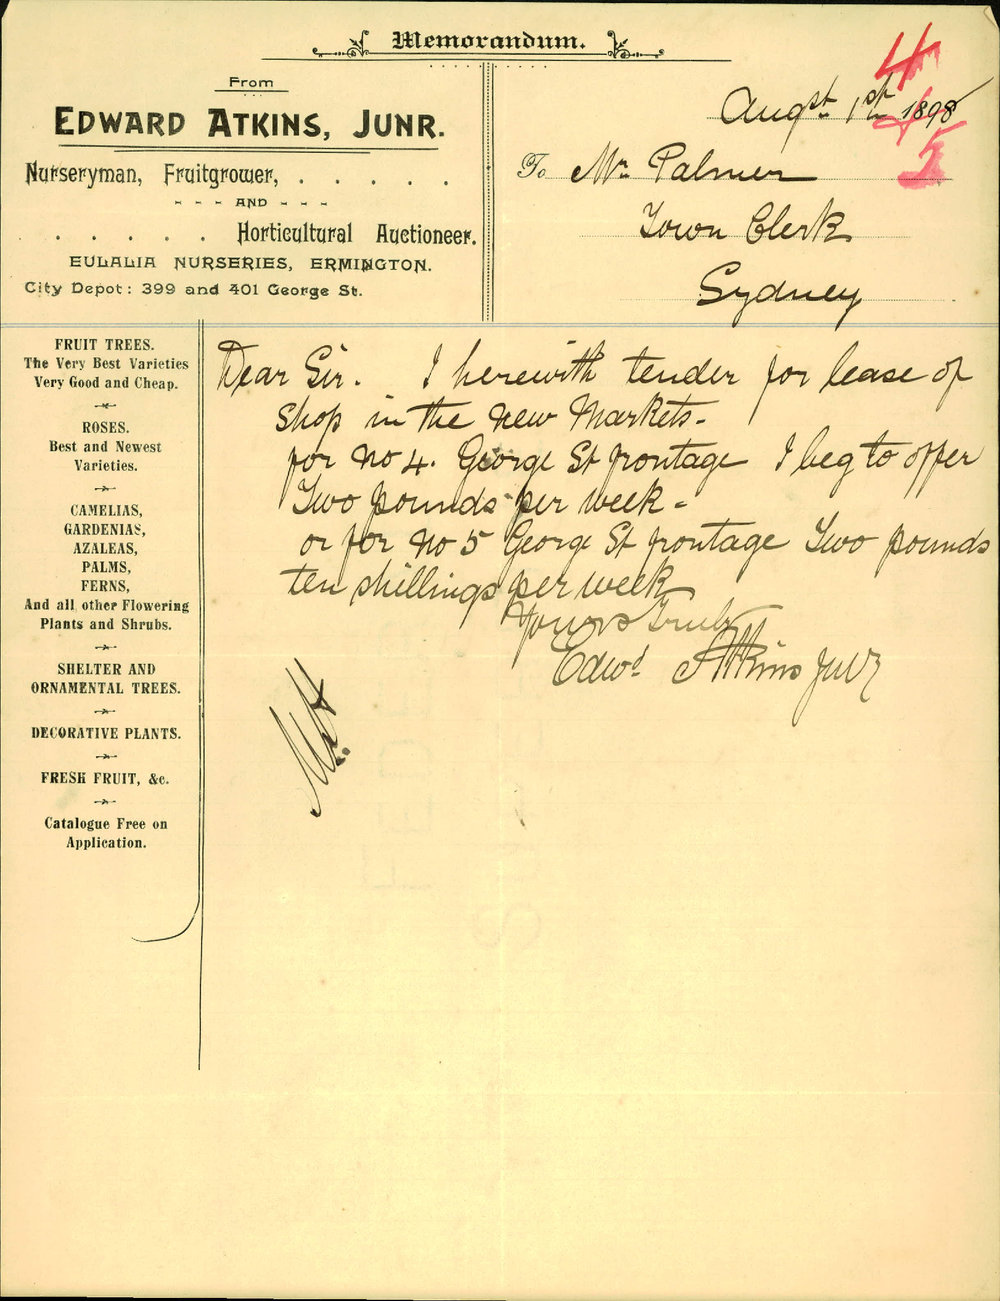 Memorandum.
From
EDWARD ATKINS, JUNR.
Nurseryman, Fruitgrower, . . . . .
- - - AND - - -
. . . . . Horticultural Auctioneer.
EULALIA NURSERIES, ERMINGTON.
City Depot: 399 and 401 George St.
4
&
5
Augst. 1st 1898
To Mr. Palmer
Town Clerk
Sydney
FRUIT TREES.
The Very Best Varieties
Very Good and Cheap.
ROSES.
Best and Newest
Varieties.
CAMELIAS,
GARDENIAS,
AZALEAS,
PALMS,
FERNS,
And all other Flowering
Plants and Shrubs.
SHELTER AND
ORNAMENTAL TREES.
DECORATIVE PLANTS.
FRESH FRUIT, &c.
Catalogue Free on
Application.
Dear Sir. I herewith tender for lease of
shop in the new Markets-
for No 4. George St frontage I beg to offer
Two pounds per week-
or for No 5 George St frontage Two pounds
ten shillings per week
Yours Truly
Edwd Atkins Junr